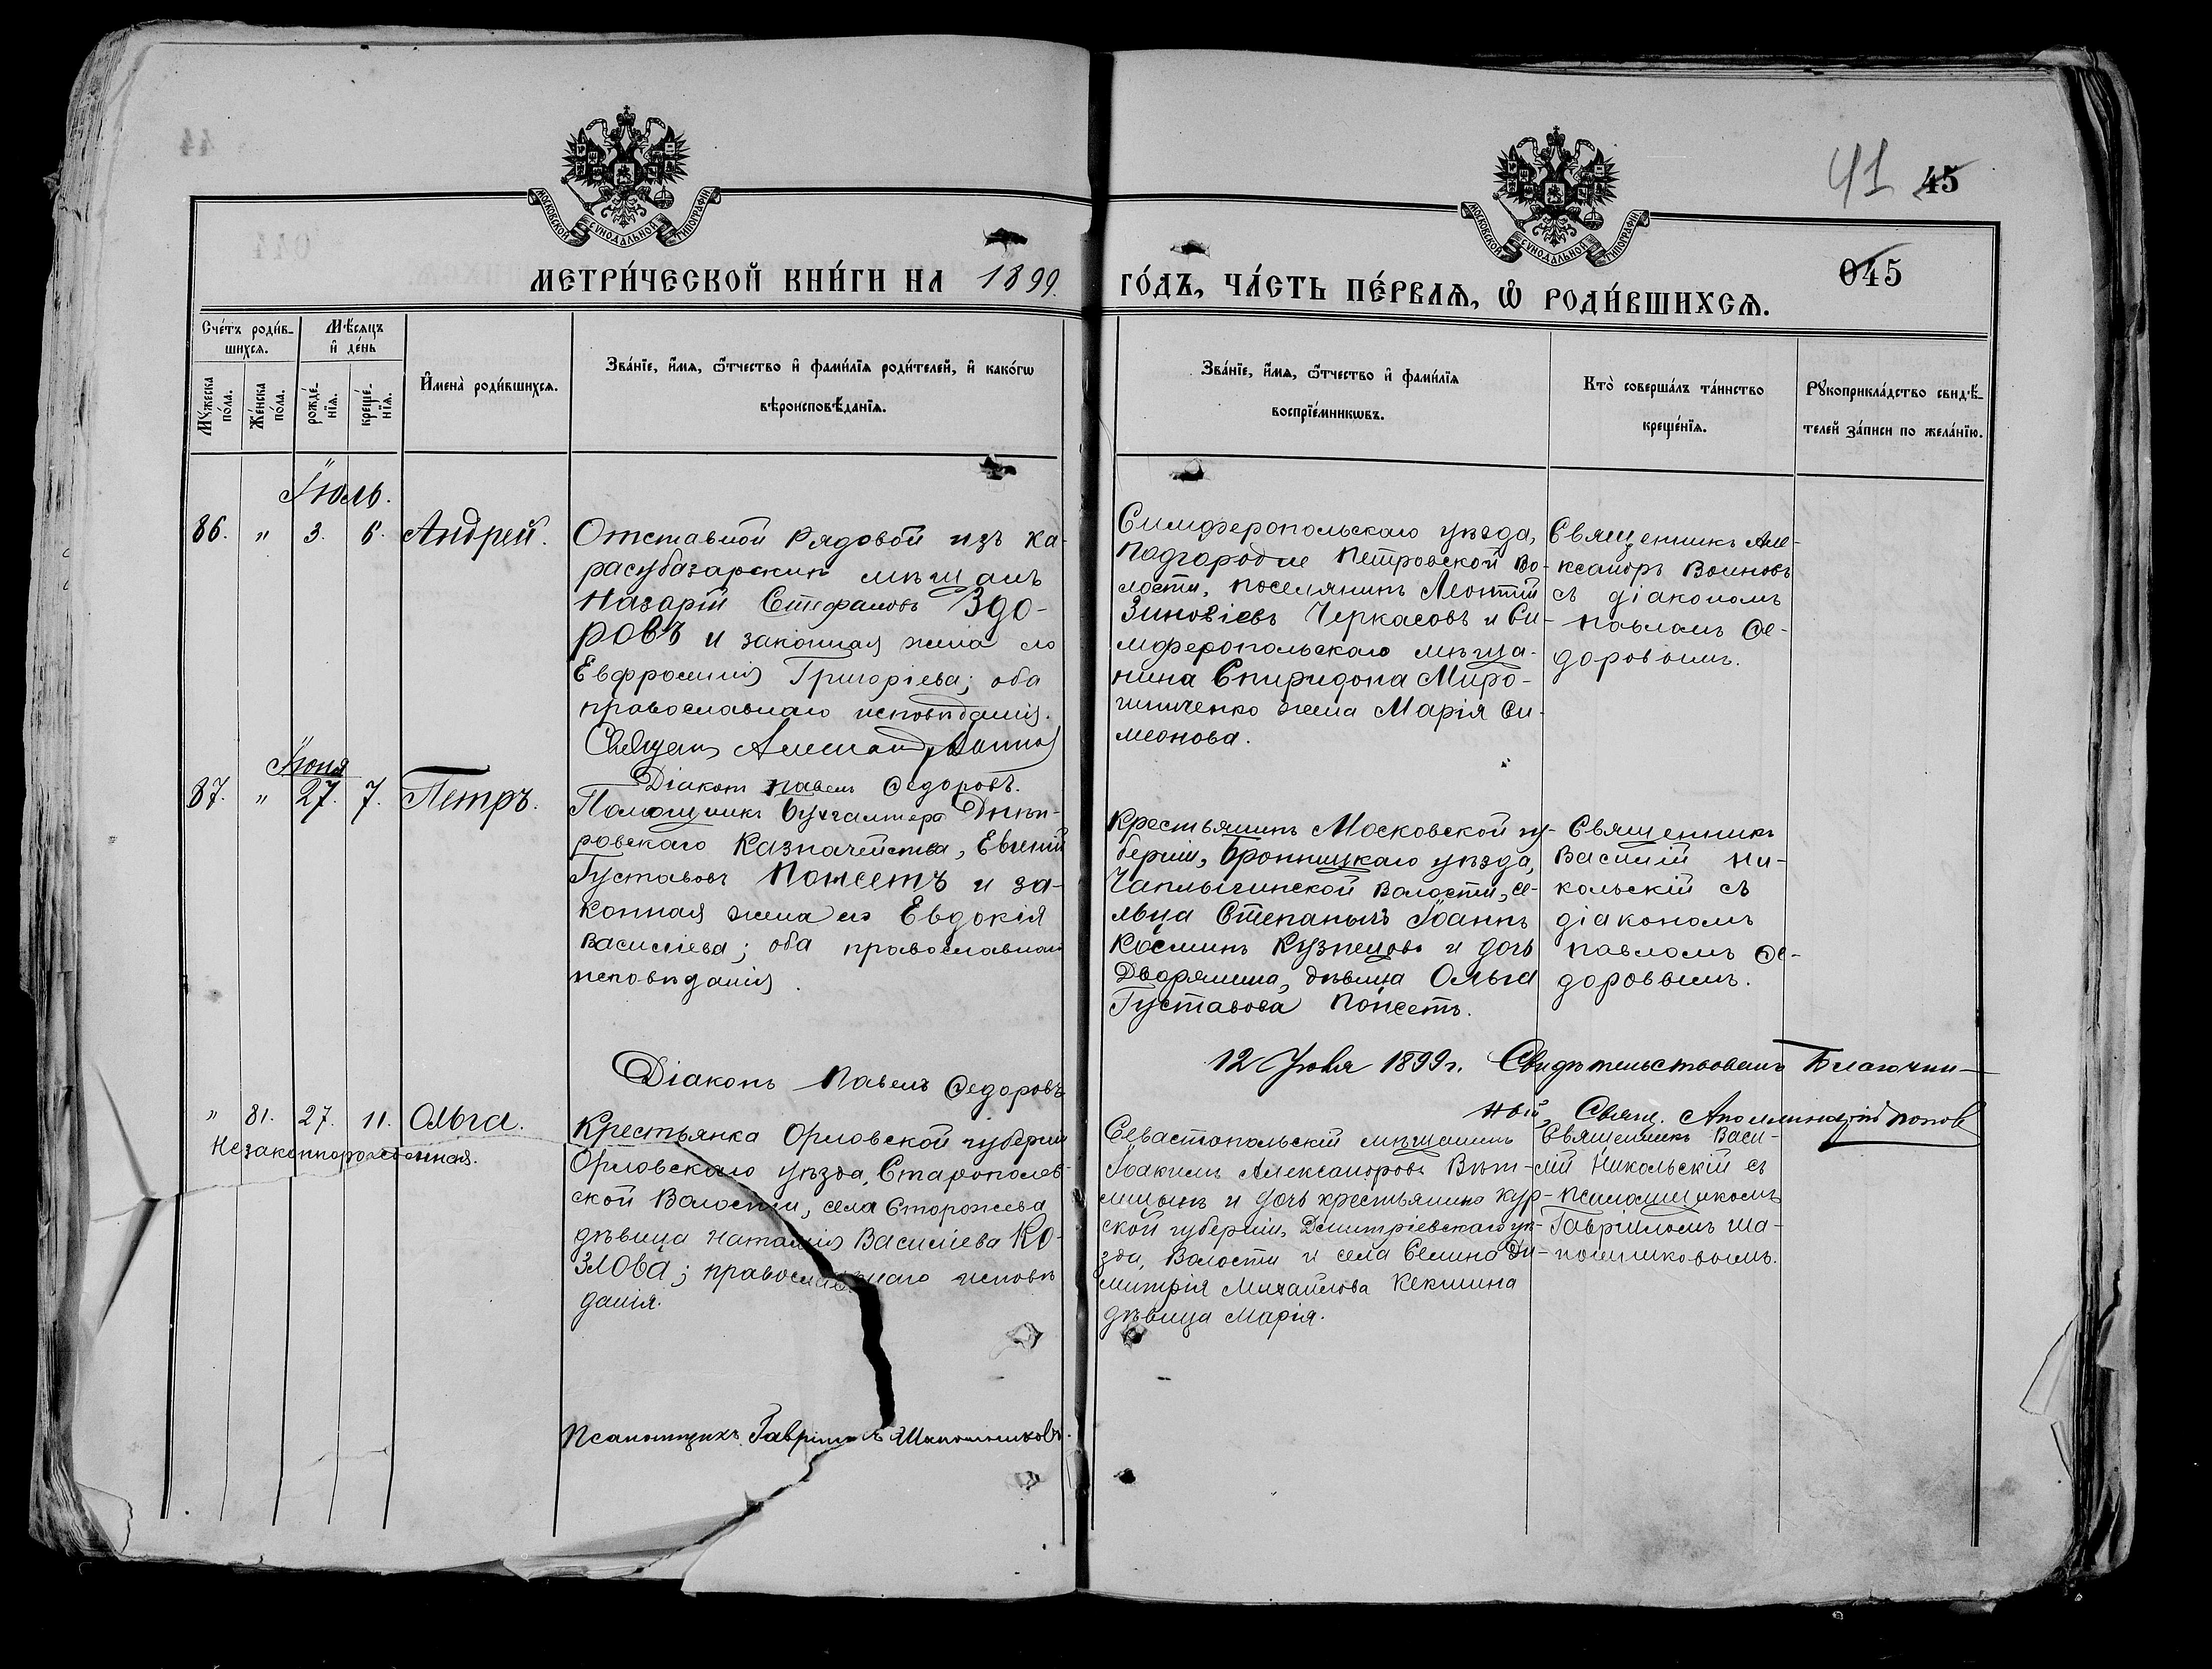 41 45
045
МОСКОВСКОЙ СѴНОДАЛЬНОЙ ТИПОГРАФІИ
МОСКОВСКОЙ СѴНОДАЛЬНОЙ ТИПОГРАФІИ
МЕТРИ́ЧЕСКОЙ КНИ́ГИ НА 1899. ГО́ДЪ, ЧА́СТЬ ПЕ́РВАѦ, Ѡ҆ РОДИ́ВШИХСѦ.
Сче́тъ роди́в-
шихсѧ.
Мѣ́сѧцъ
и҆ де́нь
Мꙋ́жеска
по́ла.
Же́нска
по́ла.
рожде́-
нїѧ.
креще́-
нїѧ.
И҆мена̀ роди́вшихсѧ.
Зва́нїе, и҆́мѧ, ѻ҆́тчество и҆ фами́лїѧ роди́телей, и҆ како́гѡ
вѣроисповѣ́данїѧ.
Зва́нїе, и҆́мѧ, ѻ҆́тчество и҆ фами́лїѧ
воспрїе́мникѡвъ.
Кто̀ соверша́лъ та́инство
креще́нїѧ.
Рꙋкоприкла́дство свидѣ́-
телей за́писи по жела́нїю.
Іюль.
86. " 3. 6. Андрей.
Отставной Рядовой изъ Ка-
расубазарскихъ мѣщанъ
Назарій Стефановъ Здо-
ровъ и законная жена его
Евфросинія Григоріева; оба
православнаго исповѣданія.
Священ. Александръ Воиновъ
Діаконъ Павелъ Ѳедоровъ.
Симферопольскаго уѣзда,
Подгородне Петровской Во-
лости, поселянинъ Леонтій
Зиновіевъ Черкасовъ и Си-
мферопольскаго мѣща-
нина Спиридона Миро-
шниченко жена Марія Си-
меонова.
Священникъ Але-
ксандръ Воиновъ
съ діакономъ
Павломъ Ѳе-
доровымъ.
Іюня
87. " 27. 7. Петръ.
Помощникъ бухгалтера Днѣп-
ровскаго Казначейства, Евгеній
Густавовъ Понсетъ и за-
конная жена его Евдокія
Василіева; оба православнаго
исповѣданія.
Діаконъ Павелъ Ѳедоровъ
Крестьянинъ Московской гу-
берніи, Бронницкаго уѣзда,
Чаплыгинской Волости, се-
льца Степанычъ Іоаннъ
Косминъ Кузнецовъ и дочь
Дворянина, дѣвица Ольга
Густавова Понсетъ.
Священникъ
Василій Ни-
кольскій съ
діакономъ
Павломъ Ѳе-
доровымъ.
12 Іюля 1899 г. Свидѣтельствовалъ Благочин-
ный, Свящ. Аполлинарій Попов
" 81. 27. 11. Ольга.
Незаконнорожденная.
Крестьянка Орловской губерніи
Орловскаго уѣзда, Старополев-
ской Волости, села Сторожева
дѣвица Наталія Василіева Ко-
злова; православнаго исповѣ
данія.
Псаломщикъ Гавріилъ Шапошниковъ.
Севастопольскій мѣщанинъ
Іоакимъ Александровъ Вѣт-
лицынъ и дочь крестьянина Кур-
ской губерніи, Дмитріевскаго уѣ-
зда, Волости и села Селина Ди-
митрія Михайлова Кекшина
дѣвица Марія.
Священникъ Васи-
лій Никольскій съ
псаломщикомъ
Гавріиломъ Ша-
пошниковымъ.